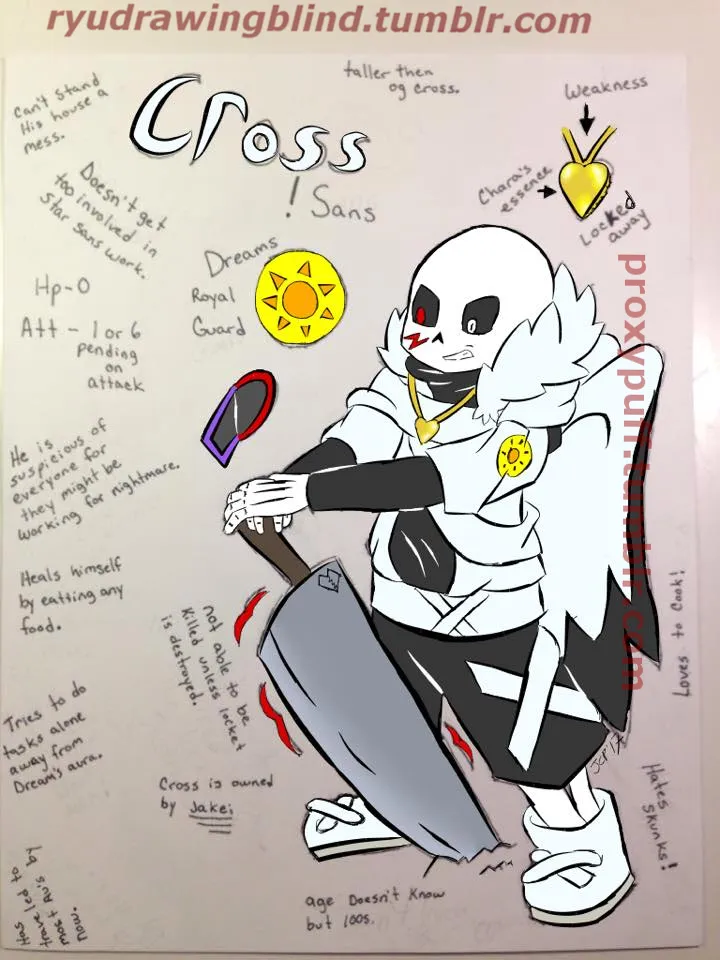 ryudrawingblind.tumblr.com
Can't Stand
His house a
mess.
taller then
og cross.
Weakness
Cross
! Sans
Chara's
essence
Locked
away
Doesn't get
too involved in
Star Sans work.
Dreams
Royal
Guard
Hp-0
Att - 1 or 6
pending
on
attack
proxypuff.tumblr.com
He is
suspicious of
everyone for
they might be
working for nightmare.
Heals himself
by eatting any
food.
not able to be
Killed unless locket
is destroyed.
Loves to Cook!
Tries to do
tasks alone
away from
Dream's aura.
Cross is owned
by Jakei
Hates
Skunks!
Has
traveled to
most Au's by
now.
age Doesn't Know
but 100s.